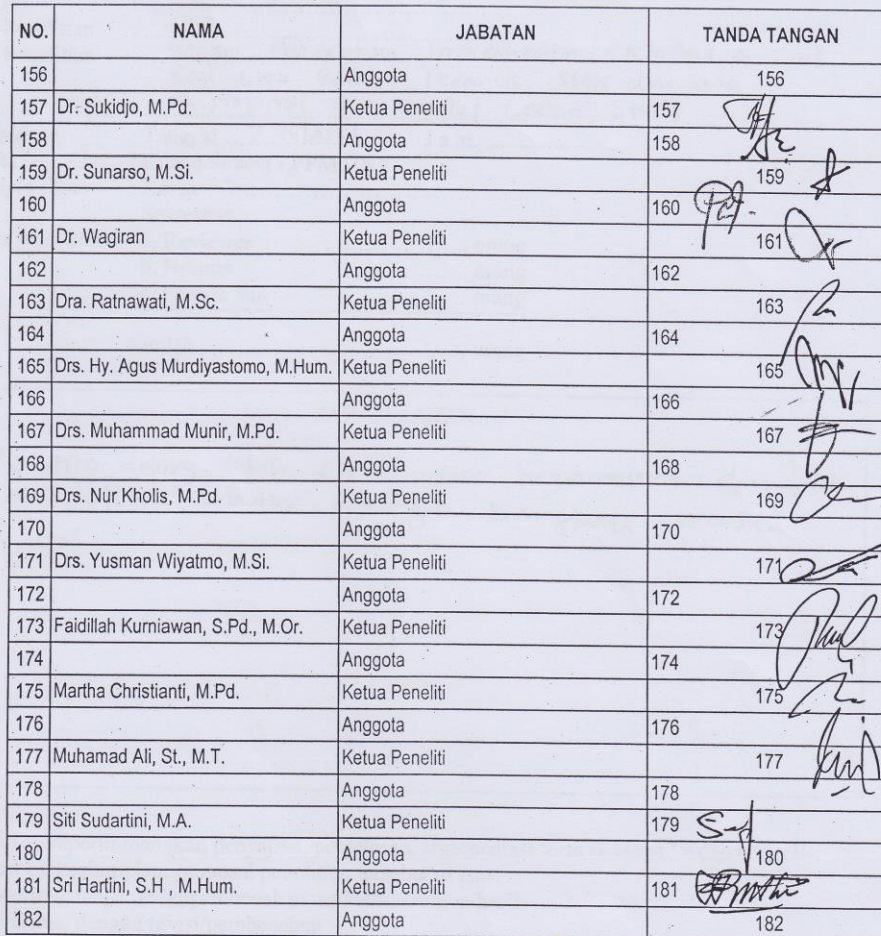 NO. NAMA JABATAN TANDA TANGAN
156 Anggota 156
157 Dr. Sukidjo, M.Pd. Ketua Peneliti 157
158 Anggota 158
159 Dr. Sunarso, M.Si. Ketua Peneliti 159
160 Anggota 160
161 Dr. Wagiran Ketua Peneliti 161
162 Anggota 162
163 Dra. Ratnawati, M.Sc. Ketua Peneliti 163
164 Anggota 164
165 Drs. Hy. Agus Murdiyastomo, M.Hum. Ketua Peneliti 165
166 Anggota 166
167 Drs. Muhammad Munir, M.Pd. Ketua Peneliti 167
168 Anggota 168
169 Drs. Nur Kholis, M.Pd. Ketua Peneliti 169
170 Anggota 170
171 Drs. Yusman Wiyatmo, M.Si. Ketua Peneliti 171
172 Anggota 172
173 Faidillah Kurniawan, S.Pd., M.Or. Ketua Peneliti 173
174 Anggota 174
175 Martha Christianti, M.Pd. Ketua Peneliti 175
176 Anggota 176
177 Muhamad Ali, St., M.T. Ketua Peneliti 177
178 Anggota 178
179 Siti Sudartini, M.A. Ketua Peneliti 179
180 Anggota 180
181 Sri Hartini, S.H , M.Hum. Ketua Peneliti 181
182 Anggota 182